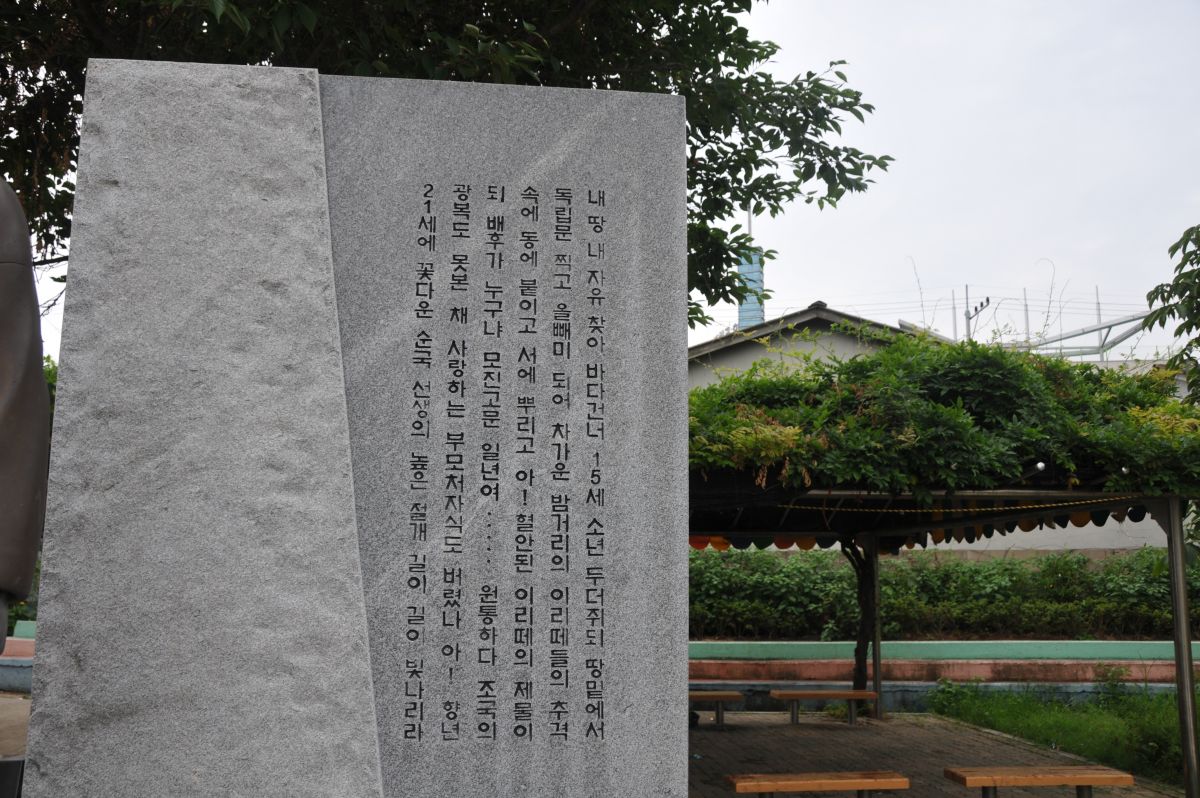 내 땅 내 자유 찾아 바다건너 15세 소년 두더쥐되 땅밑에서
독립문 찍고 올빼미 되어 차가운 밤거리의 이리떼들의 추격
속에 동에 붙이고 서에 뿌리고 아! 혈안된 이리떼의 제물이
되 배후가 누구냐 모진고문 일년여······ 원통하다 조국의
광복도 못본 채 사랑하는 부모처자식도 버렸나 아! 향년
21세에 꽃다운 순국 선생의 높은 절개 길이 길이 빛나리라